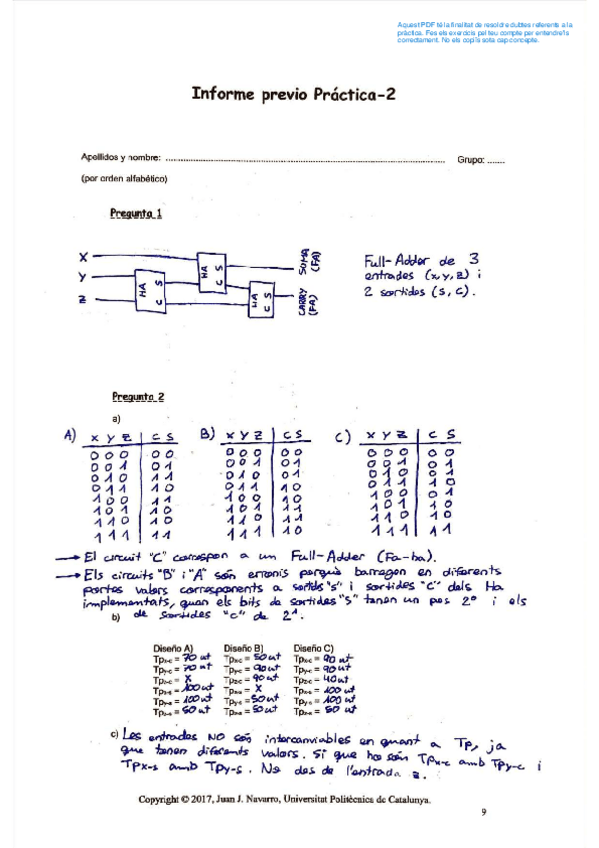 Aquest PDF té la finalitat de resoldre dubtes referents a la
pràctica. Fes els exercicis pel teu compte per entendre'ls
correctament. No els copiïs sota cap concepte.
Informe previo Práctica-2
Apellidos y nombre: ........ Grupo: .......
(por orden alfabético)
Pregunta 1
X
Y
Z
HA S C
HA S C
HA S C
SUMA (FA)
CARRY (FA)
Full-Adder de 3
entrades (x,y,z) i
2 sortides (s, c).
Pregunta 2
a)
A) X Y Z C S B) X Y Z C S C) X Y Z C S
→ El circuit "C" correspon a un Full-Adder (Fa-ha).
→ Els circuits "B" i "A" són erronis perquè barregen en diferents
portes valors corresponents a sortids "s" i sortides "C" dels Ha
implementats, quan els bits de sortides "S" tenen un pes 2⁰ i els
b) de sortides "c" de 2¹.
Diseño A) Diseño B) Diseño C)
Tpx-c = 70 ut Tpx-c = 50 ut Tpx-c = 90 ut
Tpy-c = 70 ut Tpy-c = 90 ut Tpy-c = 90 ut
Tpz-c = X Tpz-c = 90 ut Tpz-c = 40 ut
Tpx-s = 100 ut Tpx-s = X Tpx-s = 100 ut
Tpy-s = 100 ut Tpy-s = 50 ut Tpy-s = 100 ut
Tpz-s = 50 ut Tpz-s = 50 ut Tpz-s = 50 ut
c) Les entrades NO són intercanviables en quant a Tp, ja
que tenen diferents valors. Si que ho són Tpx-c amb Tpy-c i
Tpx-s amb Tpy-s. No des de l'entrada z.
Copyright © 2017, Juan J. Navarro, Universitat Politècnica de Catalunya.
9